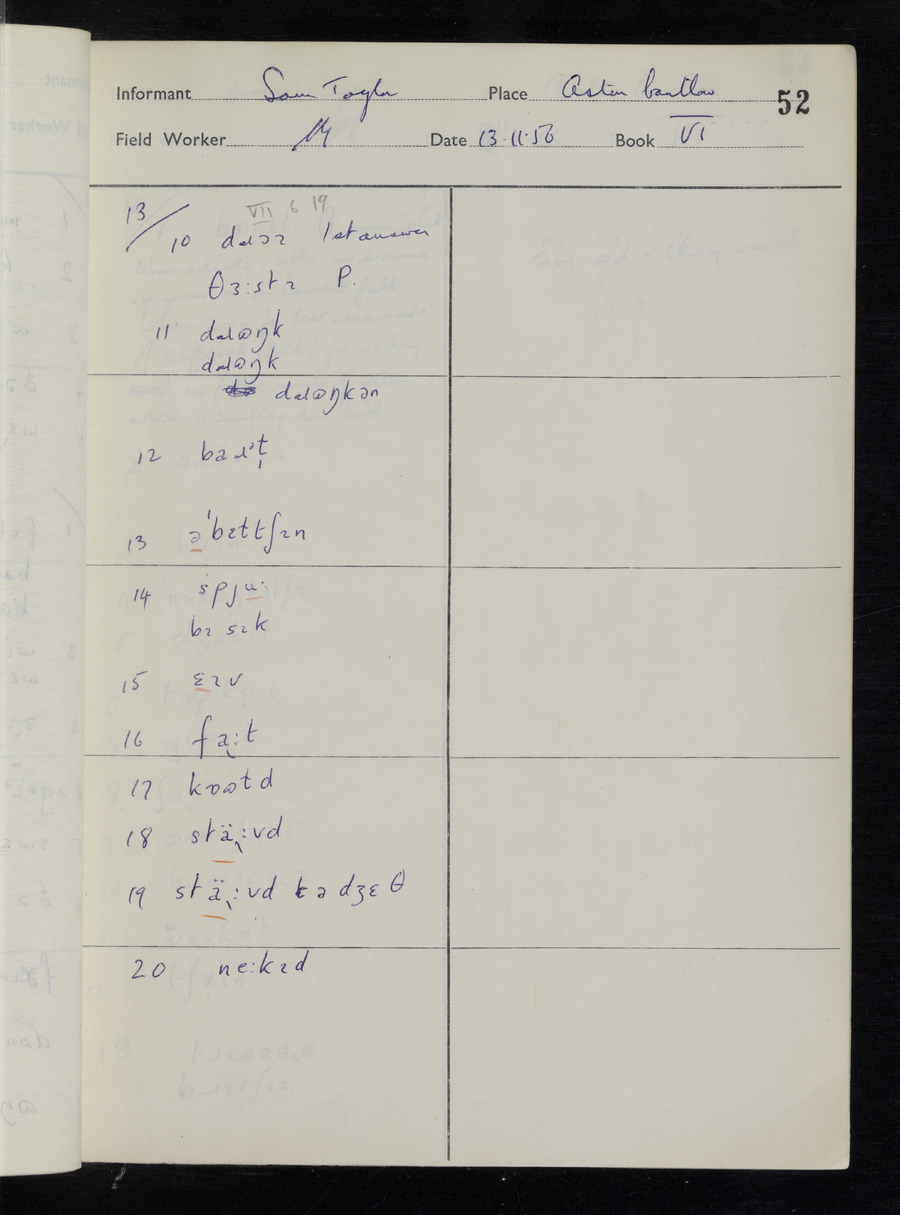 Informant Sam Taylor Place Aston Cantlow 52
Field Worker Date 13·11·56 Book VI
VII 6 19
13/ 10 dɹɔɪ 1st answer
θɜ:stɪ P.
11 dɹɷŋk
dɹɷŋk
dɹɷŋkən
12
13 ə'bɛttʃɪn
14 spju:
bɪ sɪk
15 ɛɪv
16 fa̜:t
17 kɒɷtd
18 stä̜:vd
19 stä̜:vd tə dʒɛθ
20 ne:kɪd